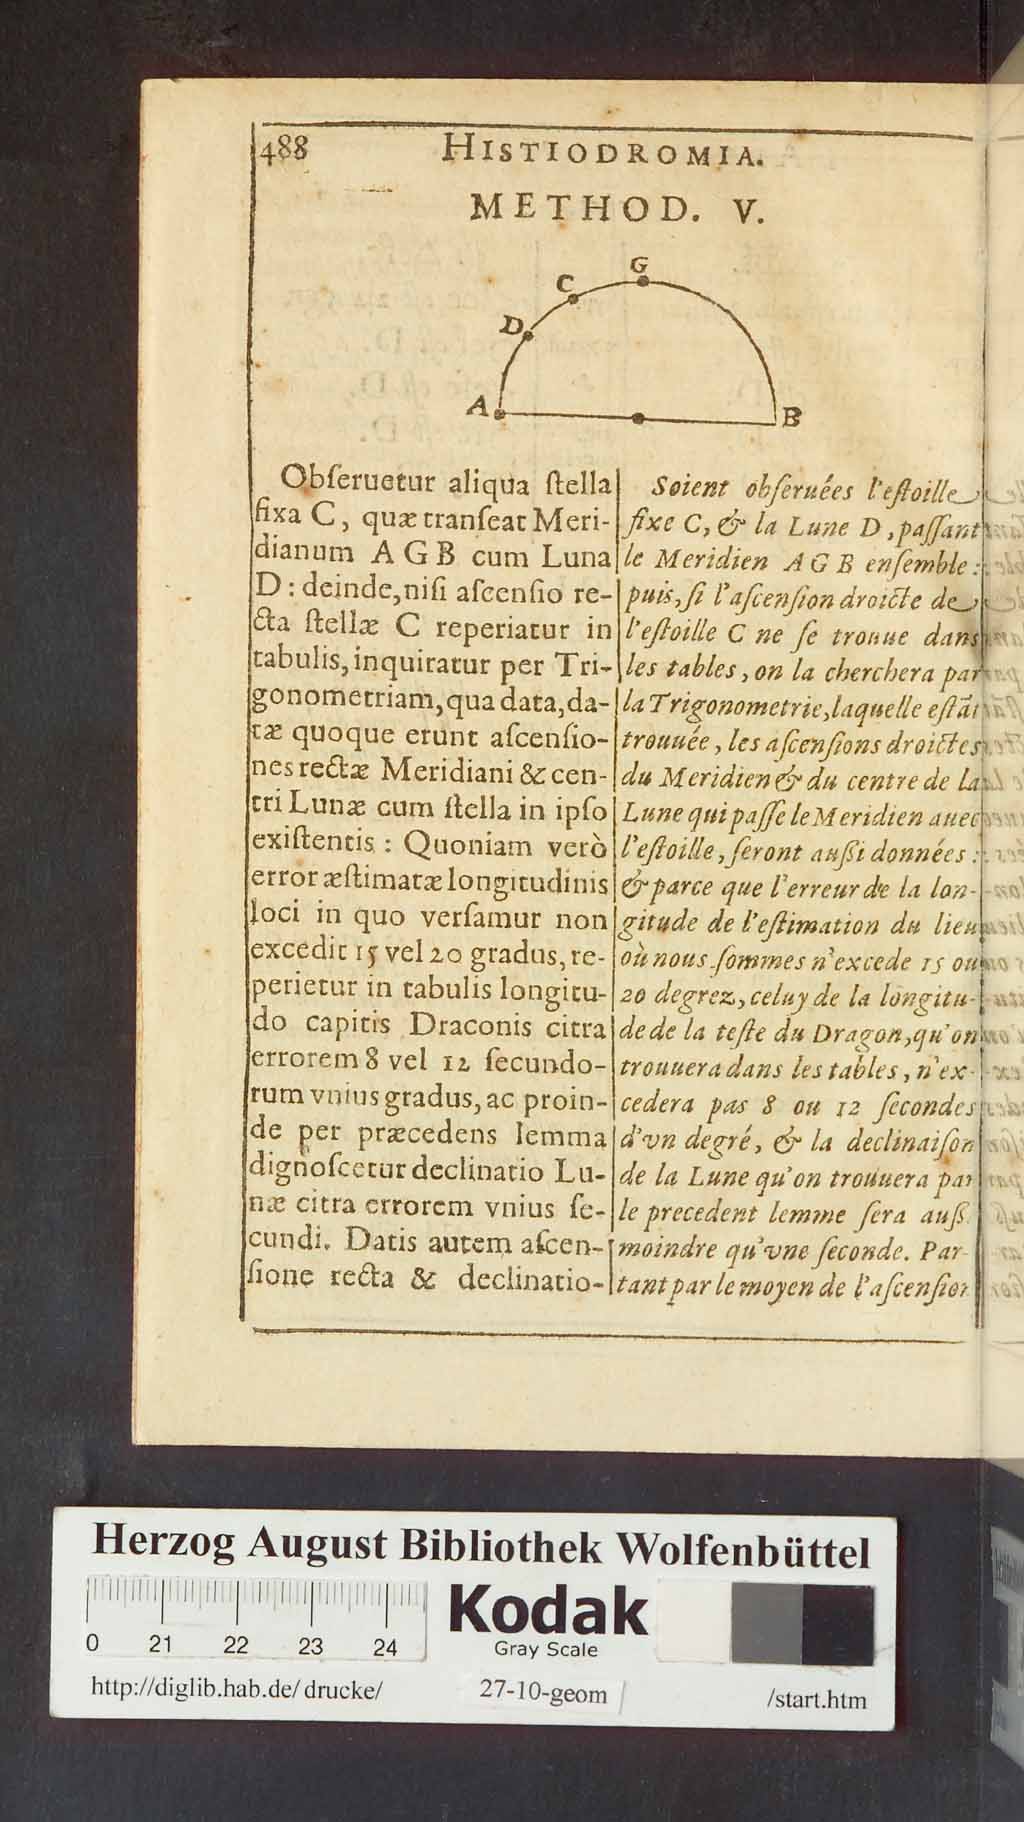 488
HISTIODROMIA.
METHOD. V.
G
C
D
A
B
Obſeruetur aliqua ſtella
fixa C, quæ tranſeat Meri-
dianum A G B cum Luna
D: deinde, niſi aſcenſio re-
cta ſtellæ C reperiatur in
tabulis, inquiratur per Tri-
gonometriam, qua data, da-
tæ quoque erunt aſcenſio-
nes rectæ Meridiani & cen-
tri Lunæ cum ſtella in ipſo
exiſtentis : Quoniam verò
error æſtimatæ longitudinis
loci in quo verſamur non
excedit 15 vel 20 gradus, re-
perietur in tabulis longitu-
do capitis Draconis citra
errorem 8 vel 12 ſecundo-
rum vnius gradus, ac proin-
de per præcedens lemma
dignoſcetur declinatio Lu-
næ citra errorem vnius ſe-
cundi. Datis autem aſcen-
ſione recta & declinatio-
Soient obſeruées l'eſtoille
fixe C, & la Lune D, paſſant
le Meridien A G B enſemble :
puis, ſi l'aſcenſion droicte de
l'eſtoille C ne ſe trouue dans
les tables, on la cherchera par
la Trigonometrie, laquelle eſtãt
trouuée, les aſcenſions droictes
du Meridien & du centre de la
Lune qui paſſe le Meridien auec
l'eſtoille, ſeront außi données :
& parce que l'erreur de la lon-
gitude de l'eſtimation du lieu
où nous ſommes n'excede 15 ou
20 degrez, celuy de la longitu-
de de la teſte du Dragon, qu'on
trouuera dans les tables, n'ex-
cedera pas 8 ou 12 ſecondes
d'vn degré, & la declinaiſon
de la Lune qu'on trouuera par
le precedent lemme ſera auß
moindre qu'vne ſeconde. Par-
tant par le moyen de l'aſcenſion
Herzog August Bibliothek Wolfenbüttel
0 21 22 23 24
Kodak
Gray Scale
http://diglib.hab.de/drucke/
27-10-geom
/start.htm